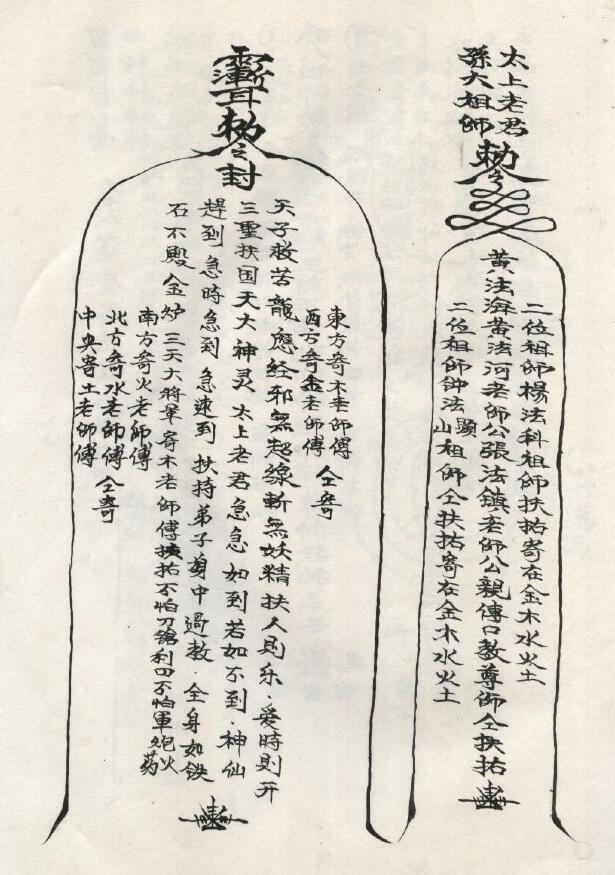 太上老君
孫大祖師
勅令
二位祖師楊法科祖師扶祐寄在金木水火土
黃法海黃法河老師公張法鎮老師公親傳口教尊師仝扶祐
二位祖師钟法顕山祖師仝扶祐寄在金木水火土
勅令封
東方寄木老師傅
西方寄金老師傅 仝寄
天子救苦龍應經邪無起線斬無妖精扶人則乐.爱時則开
三聖扶国天大神灵太上老君急急如到若如不到.神仙
趕到急時急到急速到扶持弟子身中過教.全身如铁
石不毁金炉三天大將軍寄木老師傅扶祐不怕刀鎗利四不怕軍炮火药
南方寄火老師傅
北方寄水老師傅 仝寄
中央寄土老師傅